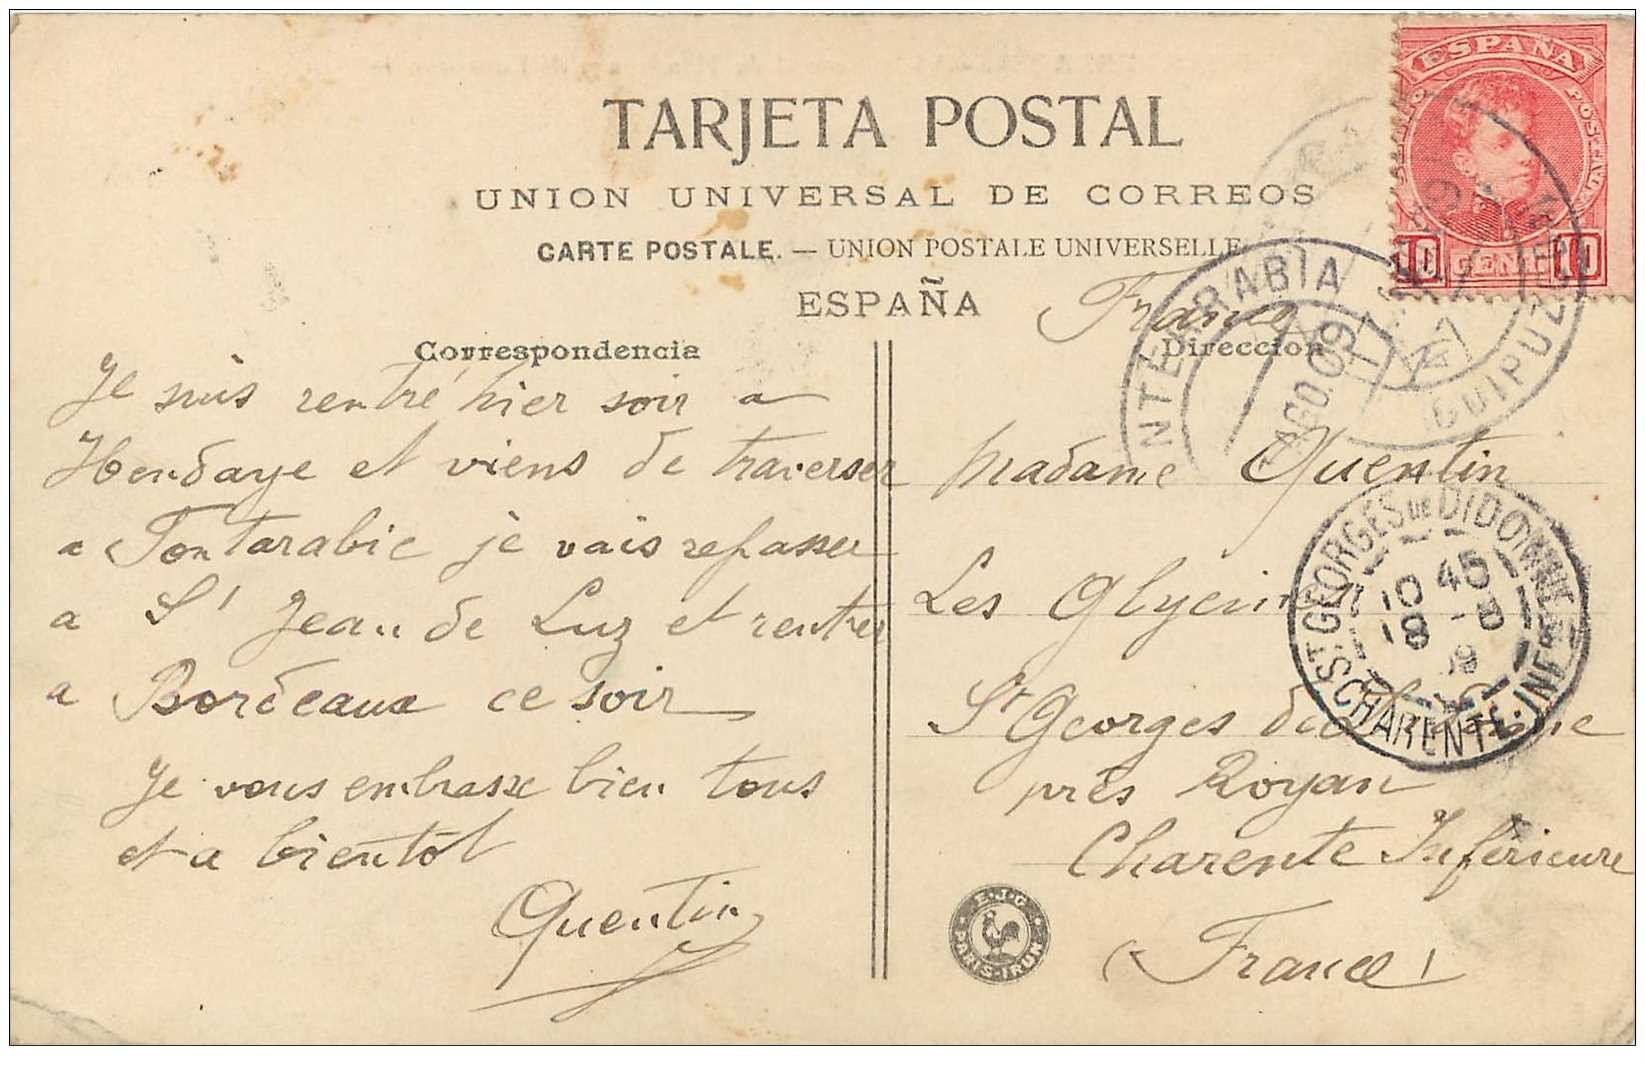 TARJETA POSTAL
UNION UNIVERSAL DE CORREOS
CARTE POSTALE. — UNION POSTALE UNIVERSELLE
ESPAÑA
ESPAÑA
10 CENT 10
France
Correspondencia
Direccion
NTERRABIA
AGO.09
GUIPUZ
Je suis rentré hier soir a
Hendaye et viens de traverser
a Fontarabie je vais repasser
a St Jean de Luz et rentrer
a Bordeaux ce soir
Je vous embrasse bien tous
et a bientôt
Quentin
Madame Quentin
Les Glycines
St Georges de
près Royan
Charente Inférieure
(France)
ST GEORGES DE DIDONNE
10 45
18 - 8
09
CHARENTE-INFRE
E.J.G
PARIS-IRUN